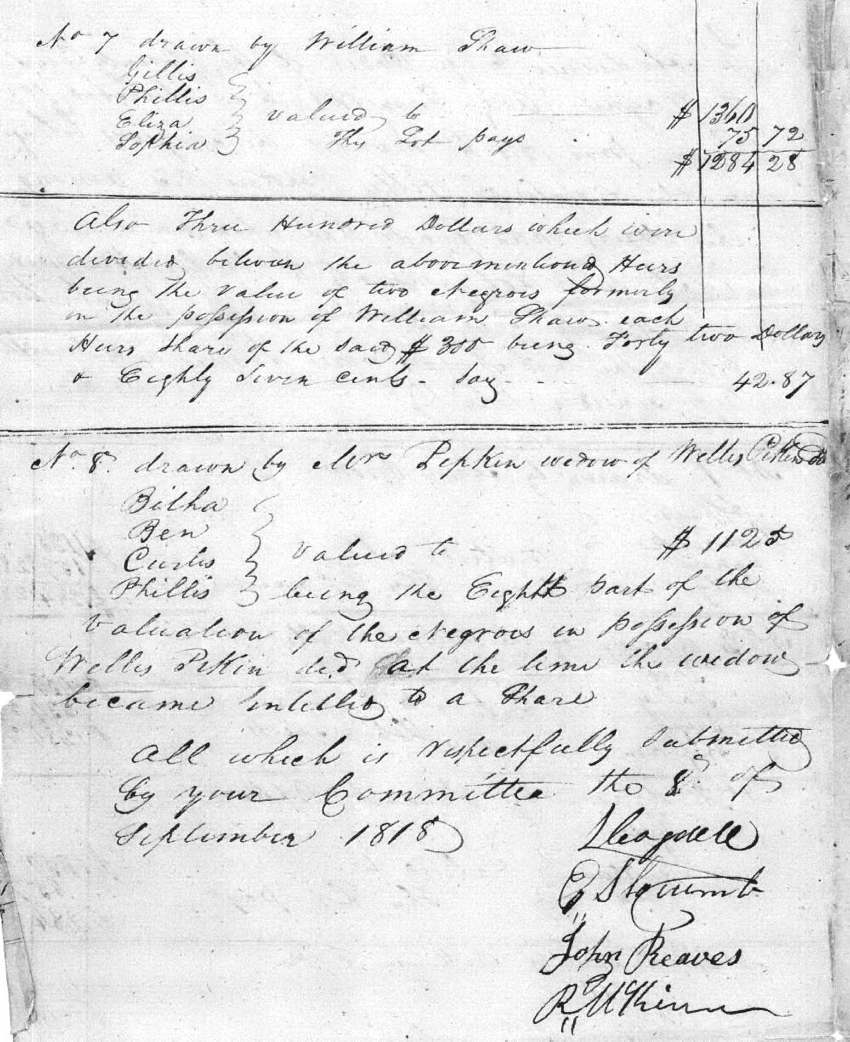 No 7 drawn by William Shaw
Gillis
Phillis
Eliza valued to $ 1360
Sophia This Lot pays 75 72
$ 1284 28
Also Three Hundred Dollars which were
divided between the abovementioned Heirs
being the value of two Negroes formerly
in the possession of William Shaw. each
Heirs Share of the said $ 300 being Forty two Dollars
& Eighty Seven cents - Say - 42.87
No 8. drawn by Mrs Pipkin widow of Willis Pipkin
Bitha
Ben
Curtis valued to $ 1125
Phillis being the Eighth part of the
Valuation of the Negroes in possession of
Willis Pipkin decd at the time the widow
became Intitled to a Share
All which is respectfully Submitted
by your Committee the 8th of
September 1818
E Slocumb
John Reaves
R McKinne